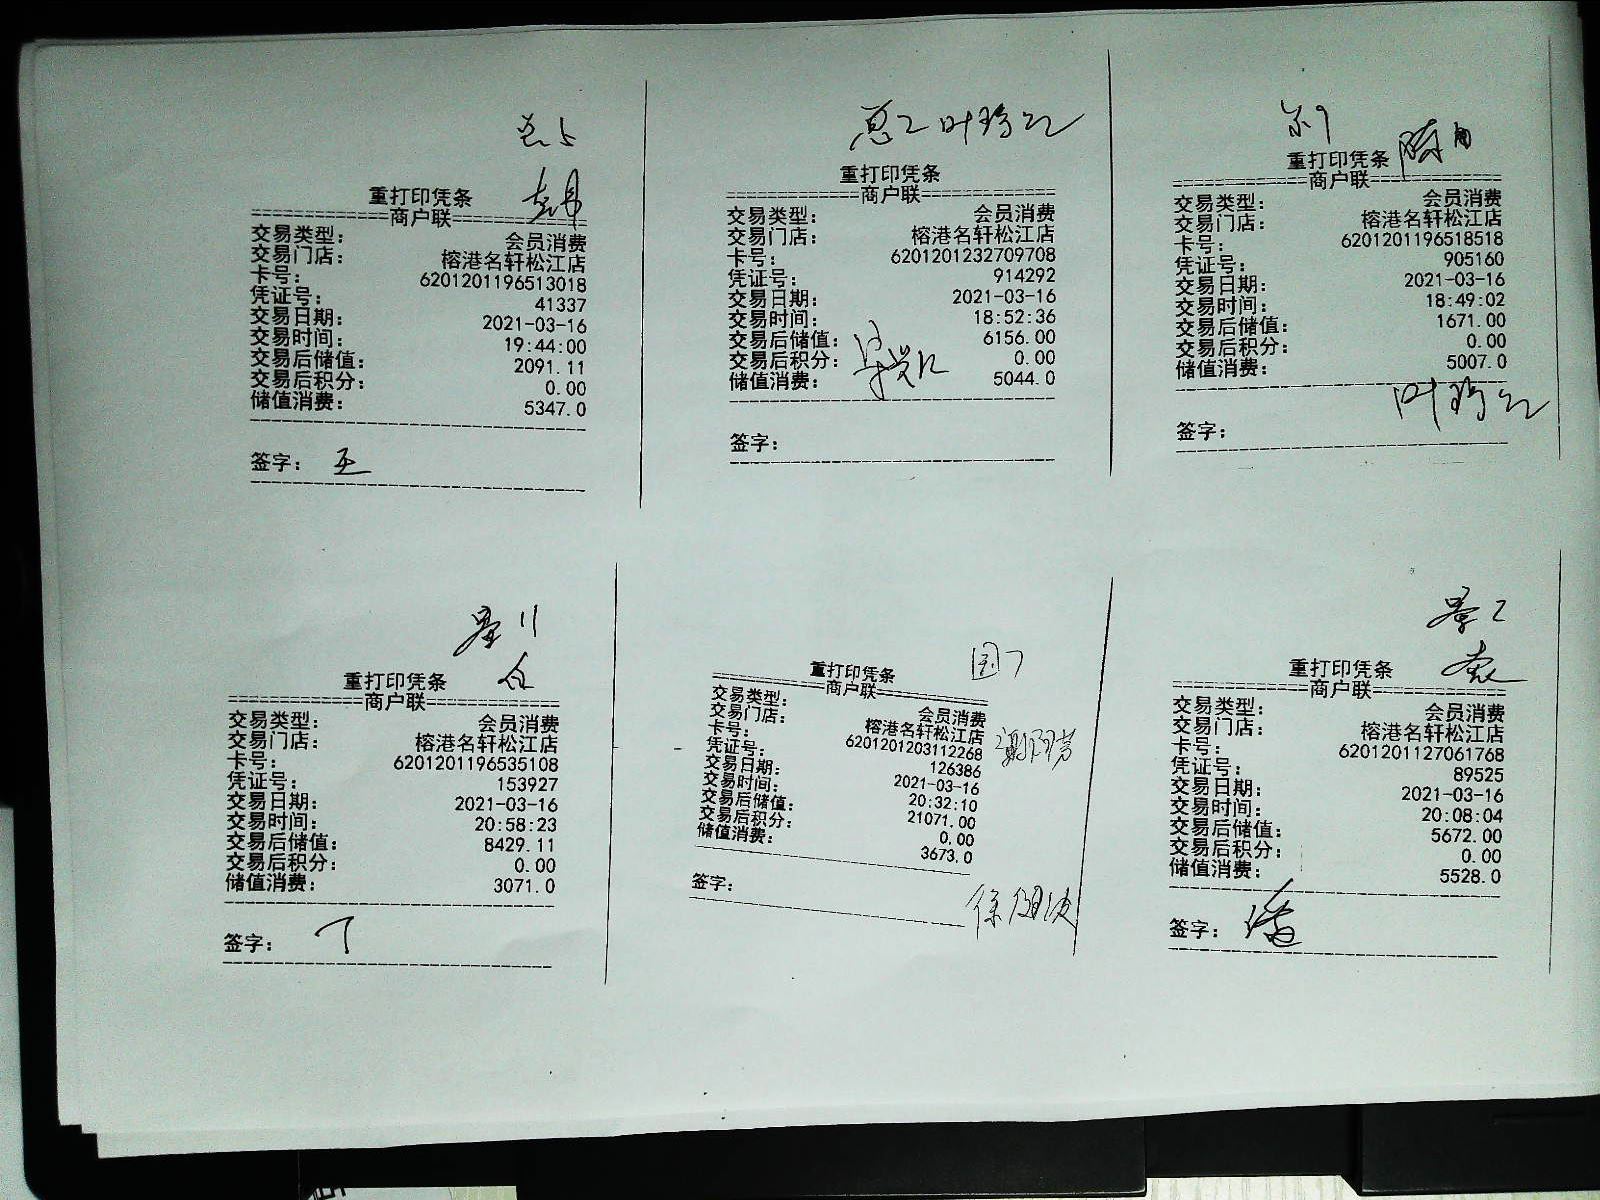 重打印凭条
商户联
交易类型： 会员消费
交易门店： 榕港名轩松江店
卡号： 6201201196513018
凭证号： 41337
交易日期： 2021-03-16
交易时间： 19:44:00
交易后储值： 2091.11
交易后积分： 0.00
储值消费： 5347.0
签字：
总2 叶玲红
重打印凭条
商户联
交易类型： 会员消费
交易门店： 榕港名轩松江店
卡号： 6201201232709708
凭证号： 914292
交易日期： 2021-03-16
交易时间： 18:52:36
交易后储值： 6156.00
交易后积分： 0.00
储值消费： 5044.0
签字：
重打印凭条
商户联
交易类型： 会员消费
交易门店： 榕港名轩松江店
卡号： 6201201196518518
凭证号： 905160
交易日期： 2021-03-16
交易时间： 18:49:02
交易后储值： 1671.00
交易后积分： 0.00
储值消费： 5007.0
叶玲红
签字：
重打印凭条
商户联
交易类型： 会员消费
交易门店： 榕港名轩松江店
卡号： 6201201196535108
凭证号： 153927
交易日期： 2021-03-16
交易时间： 20:58:23
交易后储值： 8429.11
交易后积分： 0.00
储值消费： 3071.0
签字：
国7
重打印凭条
商户联
交易类型： 会员消费
交易门店： 榕港名轩松江店
卡号： 6201201203112268
凭证号： 126386
交易日期： 2021-03-16
交易时间： 20:32:10
交易后储值： 21071.00
交易后积分： 0.00
储值消费： 3673.0
签字：
重打印凭条
商户联
交易类型： 会员消费
交易门店： 榕港名轩松江店
卡号： 6201201127061768
凭证号： 89525
交易日期： 2021-03-16
交易时间： 20:08:04
交易后储值： 5672.00
交易后积分： 0.00
储值消费： 5528.0
签字：